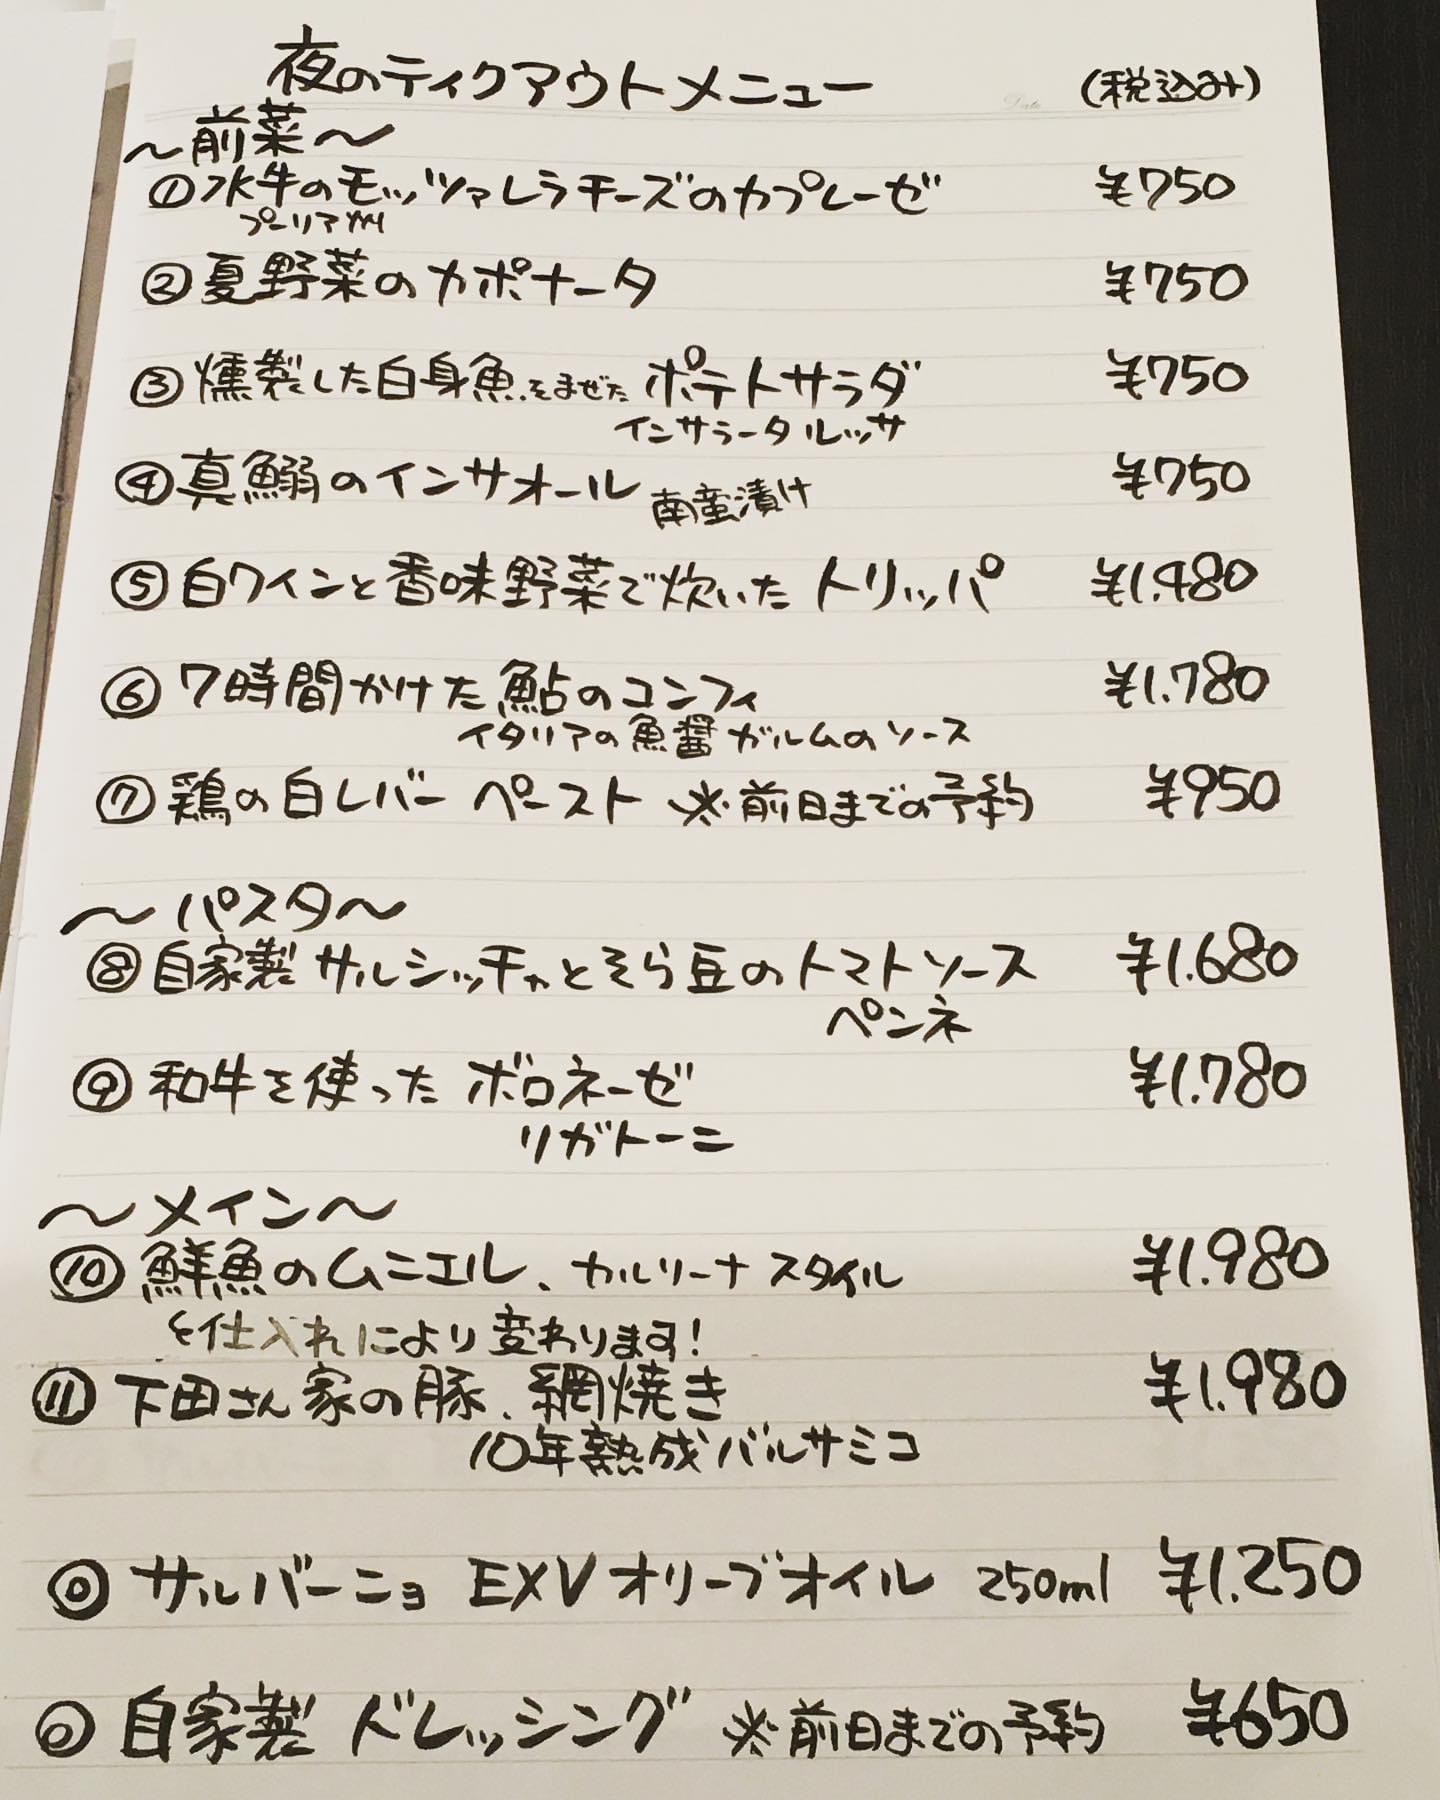 夜のティクアウトメニュー (税込み)
〜前菜〜
①水牛のモッツァレラチーズのカプレーゼ ¥750
プーリア州
②夏野菜のカポナータ ¥750
③燻製した白身魚をまぜた ポテトサラダ ¥750
インサラータルッサ
④真鰯のインサオール 南蛮漬け ¥750
⑤白ワインと香味野菜で炊いた トリッパ ¥1.480
⑥7時間かけた鮎のコンフィ ¥1.780
イタリアの魚醤 ガルムのソース
⑦鶏の白レバー ペースト ※前日までの予約 ¥950
〜パスタ〜
⑧自家製 サルシッチャとそら豆のトマトソース ¥1.680
ペンネ
⑨和牛を使った ボロネーゼ ¥1.780
リガトーニ
〜メイン〜
⑩鮮魚のムニエル、カルリーナ スタイル ¥1.980
仕入れにより変わります!
⑪下田さん家の豚、網焼き ¥1.980
10年熟成バルサミコ
◎サルバーニョ EXVオリーブオイル 250ml ¥1.250
◎自家製 ドレッシング ※前日までの予約 ¥650